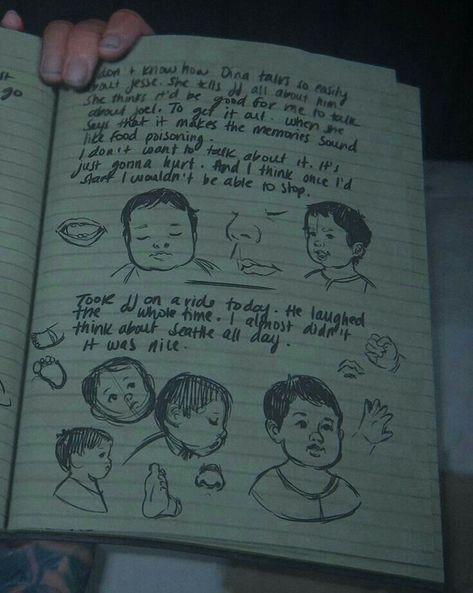 st
go
don't know how Dina talks so easily
about Jesse. She tells JJ all about him
She thinks it'd be good for me to talk
about Joel. To get it out. When she
says that it makes the memories sound
like food poisoning.
I don't want to talk about it. It's
just gonna hurt. And I think once I'd
start I wouldn't be able to stop.
Took JJ on a ride today. He laughed
the whole time. I almost didn't
think about Seattle all day.
It was nice.